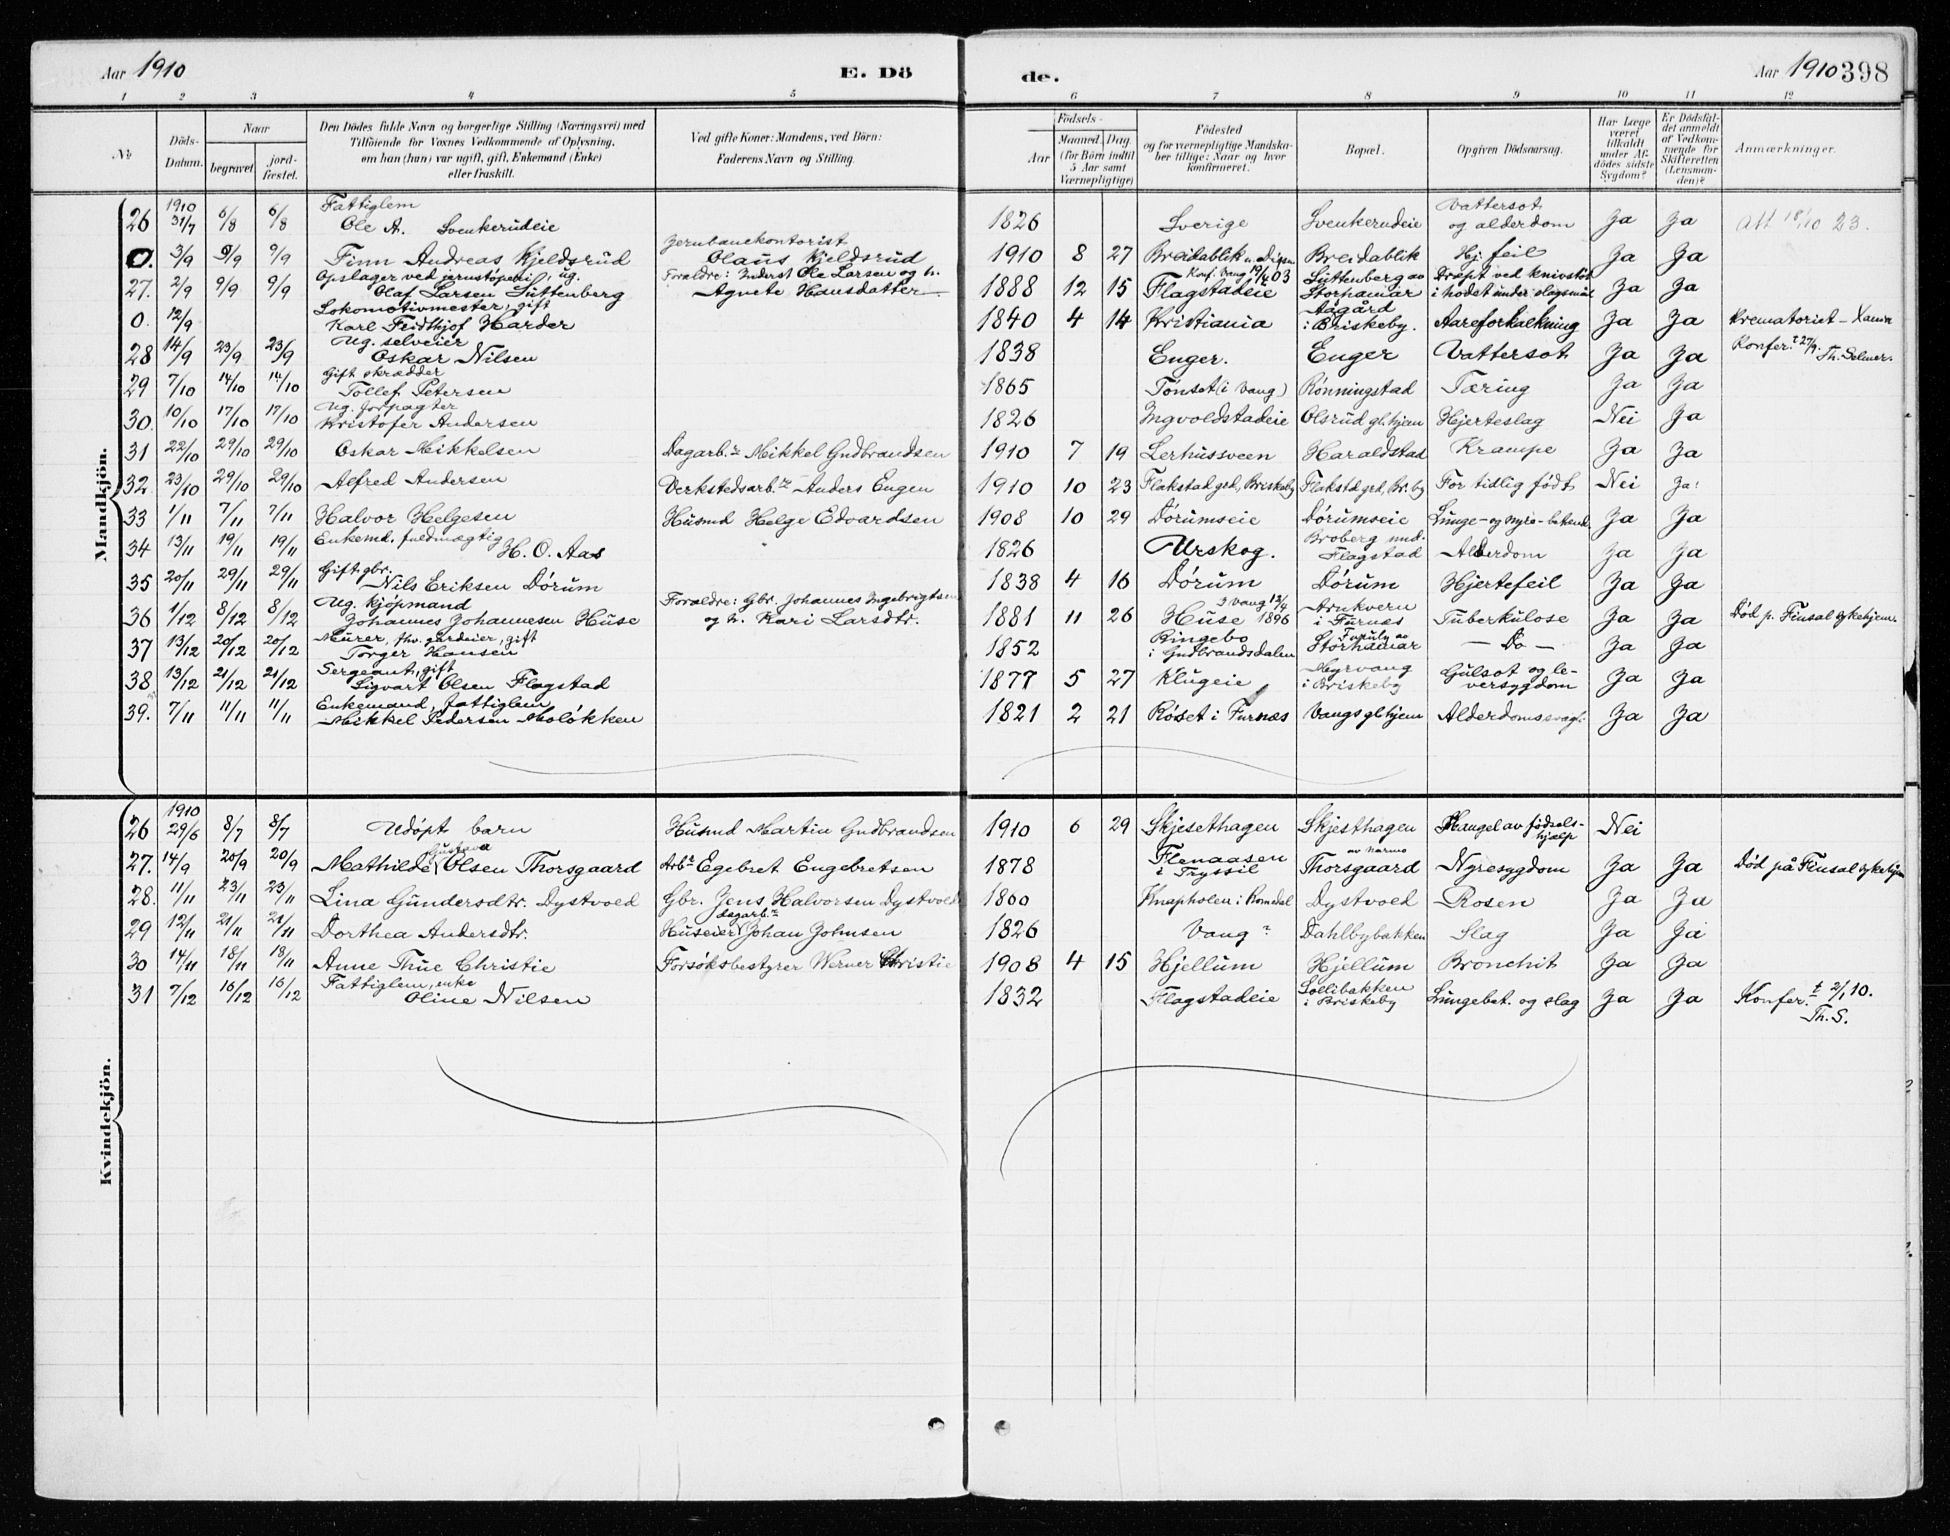 Aar 1910 E. Dö de. Aar 1910 398
1 2 3 4 5 6 7 8 9 10 11 12
No Döds-Datum. Naar begravet jord-fæstet. Den Dödes fulde Navn og borgerlige Stilling (Næringsvei) med Tilföiende for Voxnes Vedkommende af Oplysning, om han (hun) var ugift, gift, Enkemand (Enke) eller fraskilt. Ved gifte Koner: Mandens, ved Börn: Faderens Navn og Stilling. Födsels- Aar Maaned. Dag. (for Börn indtil 5 Aar samt Værnepligtige) Födested og for værnepligtige Mandskaber tillige: Naar og hvor konfirmeret. Bopæl. Opgiven Dödsaarsag. Har Læge været tilkaldt under Afdödes sidste Sygdom? Er Dödsfaldet anmeldt af Vedkommende for Skifteretten (Lensmanden)? Anmærkninger.
Mandkjön.
26 1910 31/7 6/8 6/8 Fattiglem Ole A. Svenkerudeie 1826 Sverige Svenkerudeie Vattersot og alderdom Ja Ja Att 18/10 23.
0. 3/9 9/9 9/9 Finn Andreas Kjeldsrud Jernbanekontorist Olaus Kjeldsrud 1910 8 27 Breidablik Breidablik Hj. feil Ja Ja
27. 2/9 9/9 9/9 Opslager ved jernstøperi, ug. Olaf Larsen Luttenberg Forældre: Inderst Ole Larsen og h. Agnete Hansdatter 1888 12 15 Flagstadeie Konf. Vang 19/4 03 Luttenberg av Storhamar Dræpt ved knivstik i hodet under slagsmål Ja Ja
0. 12/9 Lokomotivmester, gift Karl Fridthjof Harder 1840 4 14 Kristiania Aagård i Briskeby. Aareforkalkning Ja Ja Krematoriet
28 14/9 23/9 23/9 Ug. selveier Oskar Nilsen 1838 Enger. Enger Vattersot Ja Ja Konfer.t 27/9. Th. Selmer.
29 7/10 14/10 14/10 Gift skrædder Tollef Petersen 1865 Tønset (i Vang) Rønningstad Tæring Ja Ja
30. 10/10 17/10 17/10 Ug. forpagter Kristofer Andersen 1826 Ingvoldstadeie Olsrud gl. hjem Hjerteslag Nei Ja
31 22/10 29/10 29/10 Oskar Mikkelsen Dagarb.r Mikkel Gudbrandsen 1910 7 19 Lerhussveen Haraldstad Krampe Ja Ja
32. 23/10 29/10 29/10 Alfred Andersen Verkstedsarb.r Anders Engen 1910 10 23 Flakstad grd, Briskeby Flakstd grd, Br.by For tidlig født Nei Ja
33 1/11 7/11 7/11 Halvor Helgesen Husmd Helge Edvardsen 1908 10 29 Dørumseie Dørumseie Lunge- og nyre-betænd. Ja Ja
34 13/11 19/11 19/11 Enkemd. fuldmægtig H. O. Aas 1826 Urskog. Broberg und. Flagstad Alderdom Ja Ja
35 20/11 29/11 29/11 Gift gbr. Nils Eriksen Dørum 1838 4 16 Dørum Dørum Hjertefeil Ja Ja
36 1/12 8/12 8/12 Ug. kjøpmand Johannes Johannesen Huse Forældre: Gbr. Johannes Ingebrigtsen og h. Kari Larsdtr. 1881 11 26 Huse I Vang 12/4 1896 Arnkvern i Furnæs Tuberkulose Ja Ja Død p. Finsal sykehjem.
37 13/12 20/12 20/12 Murer, fhv. gårdeier, gift Torger Hansen 1852 Ringebo i Gudbrandsdalen Furuly av Storhamar — Do — Ja Ja
38 13/12 21/12 21/12 Sergeant, gift Sigvart Olsen Flagstad 1877 5 27 Klugeie Myrvang i Briskeby Gulsot og leversygdom Ja Ja
39. 7/11 11/11 11/11 Enkemand, fattiglem Mikkel Pedersen Moløkken 1821 2 21 Røset i Furnæs Vangs gl. hjem Alderdomssvagh. Ja Ja
Kvindekjön.
26 1910 29/6 8/7 8/7 Udøpt barn Husmd Martin Gudbrandsen 1910 6 29 Skjesethagen Skjesthagen Mangel av fødselshjælp Nei
27. 14/9 20/9 20/9 Mathilde Gustava Olsen Thorsgaard Arb.r Egebret Engebretsen 1878 Flenaasen i Trysil Thorsgaard Nyresygdom Ja Ja Død på Finsal sykehjem
28. 11/11 23/11 23/11 Lina Gundersdtr. Dystvold Gbr. Jens Halvorsen Dystvold 1860 Knapholen i Romedal Dystvoed Rosen Ja Ja
29 12/11 21/11 21/11 Dorthea Andersdtr. Huseier dagarb.r Johan Johnsen 1826 Vang Dahlbybakken Slag Ja Ja
30 14/11 18/11 18/11 Anne Thue Christie Forsøksbestyrer Werner Christie 1908 4 15 Hjellum Hjellum Bronchit Ja Ja
31 7/12 16/12 16/12 Fattiglem, enke Oline Nilsen 1832 Flagstadeie Sollibakken i Briskeby Lungebet. og slag Ja Ja Konfer.t 2/1 10. Th. S.